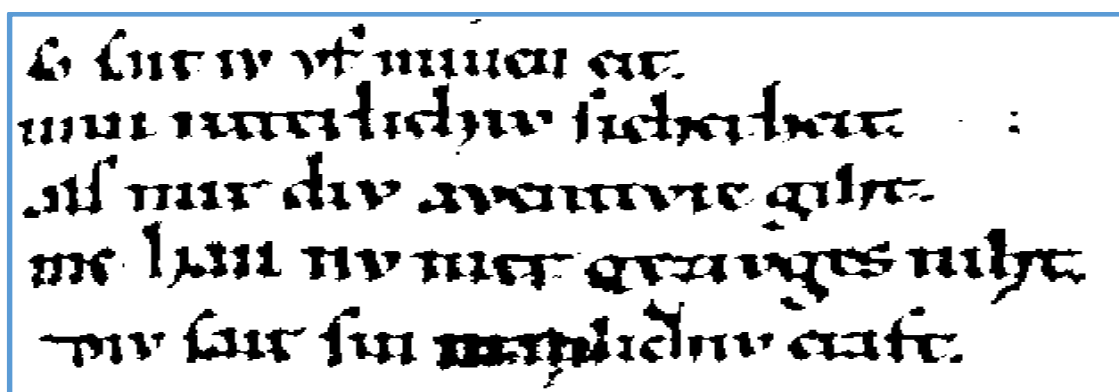 ſo ſint iv vf minen eit.
min ritterlichiv ſicherheit.
alſ mir div aventivre giht.
ine han nv mer gezivges niht.
Div ſait ſin manlichiv craft.